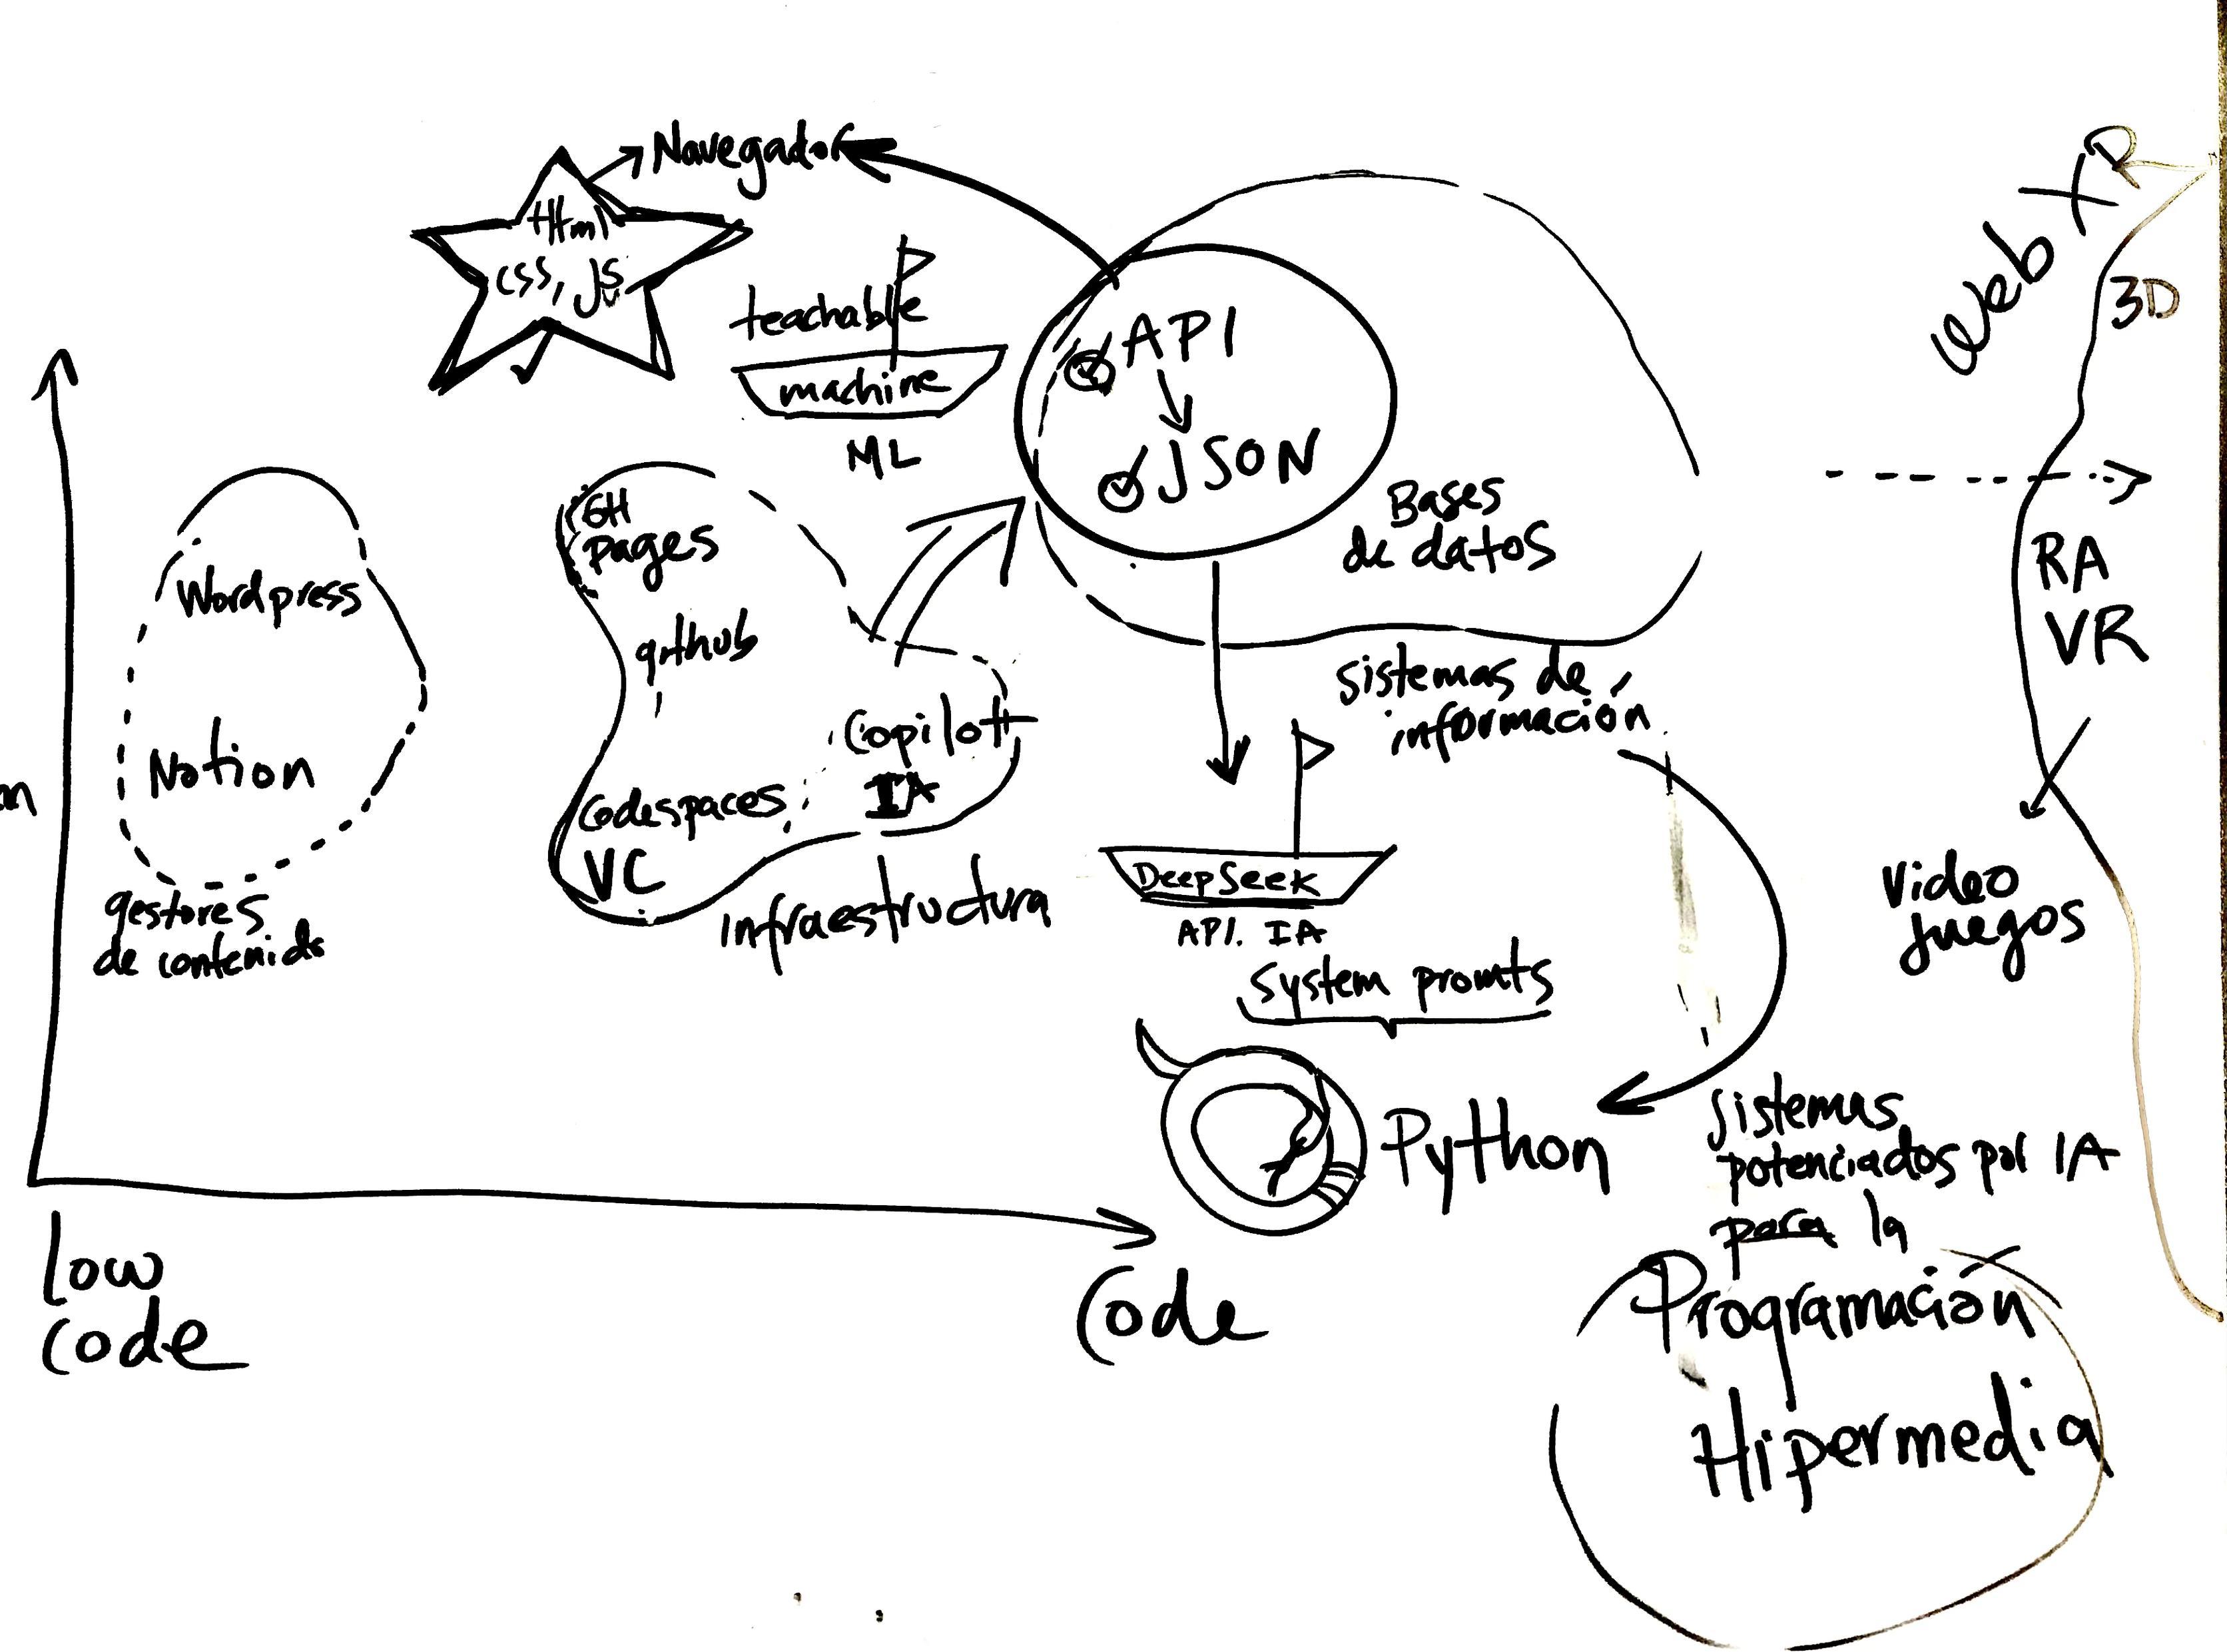 Navegador
Html
css, JS
teachable
machine
ML
API
JSON
Bases
de datos
sistemas de
información
Web XR
3D
RA
VR
Video
Juegos
Wordpress
Notion
gestores
de contenido
GH
pages
github
Copilot
IA
Codespaces
VC
Infraestructura
DeepSeek
API. IA
System promts
Python
Sistemas
potenciados por IA
para la
Programación
Hipermedia
Low
Code
Code